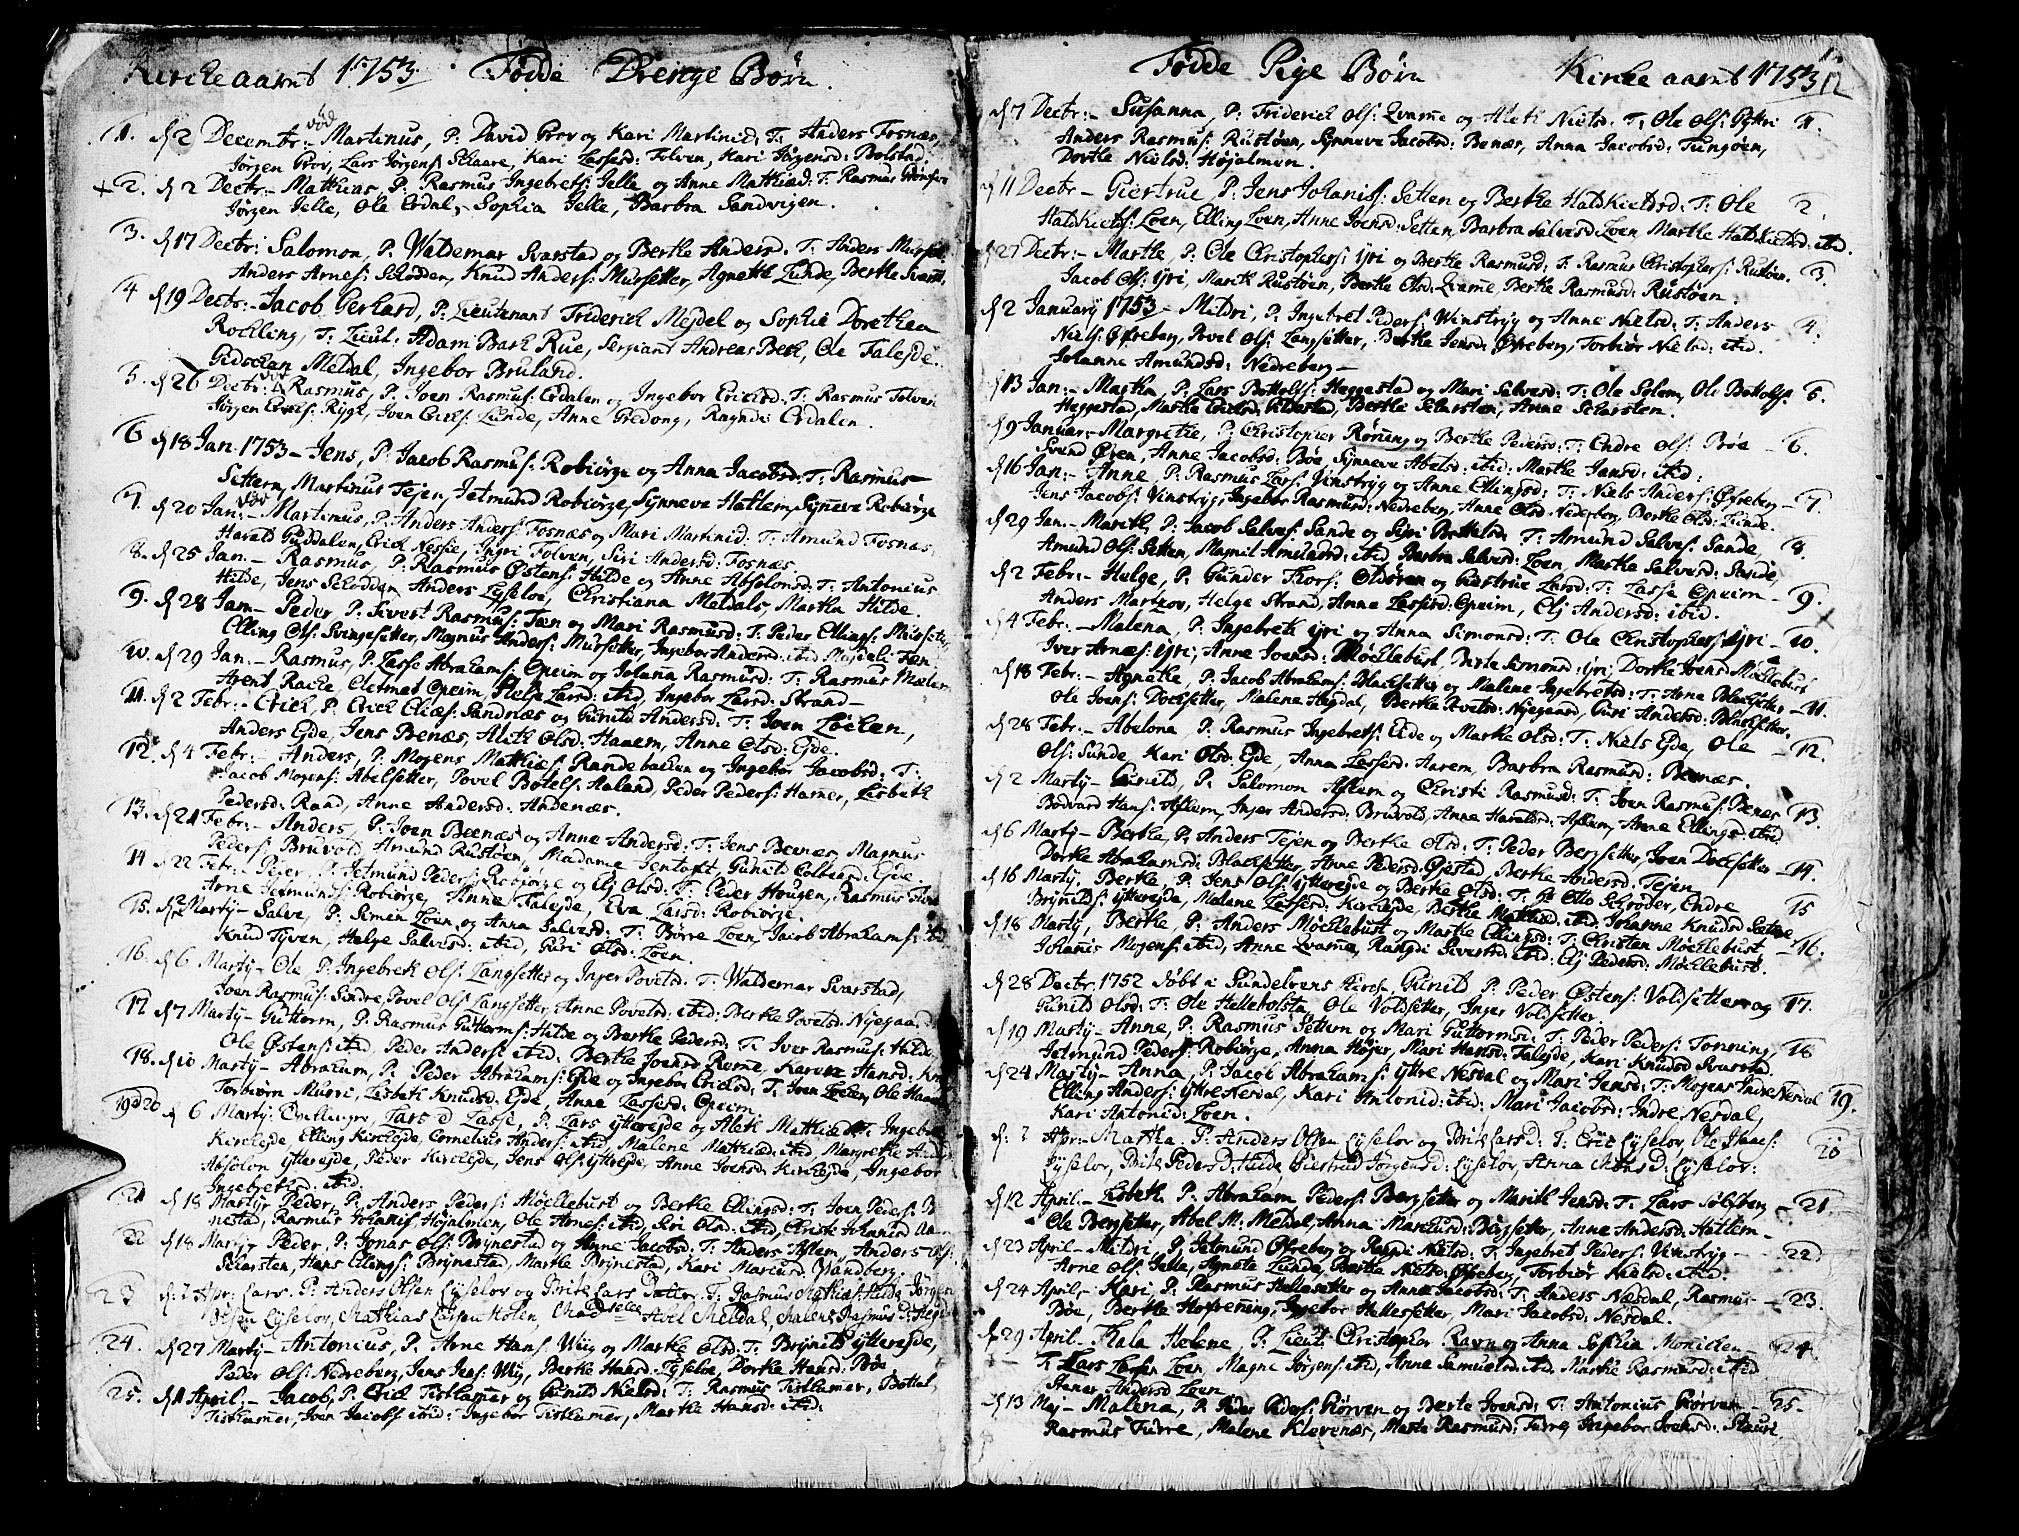 Kirke aaret 1753. Fødde Drenge Børn.
1. d 2 Decembr: død Martinus, P: David Grov og Kari Martinid: T: Anders Fosnæs,
Jørgen Grov, Lars Jørgens: Skaare, Kari Lassesd: Tolven, Kari Jørgensd: Bolstad.
+ 2. d 2 Decbr:– Mathias, P. Rasmus Ingebrets: Jelle og Anne Mathiæd: T: Rasmus
Jørgen Jelle, Ole Erdal, Sophia Jelle, Barbra Sandvigen.
3. d 17 Decbr: Salomon, P. Waldemar Svarstad og Berthe Andersd: T: Anders
Anders Arnes: Skodden, Knud Anders: Mursetter, Agnethe Lunde, Berthe
4 d 19 Decbr:– Jacob Gerhard, P. Lieutenant Friderich Mejdel og Sophie Dorethea
Rochling, T: Lieut: Adam Bark Rue, Sergiant Andreas Beck, Ole Talejde
Meldal, Ingebor Bruland.
5. d 26 Decbr: død Rasmus, P. Joen Rasmus: Erdalen og Ingebor Erichsd: T: Rasmus Tolven
Jørgen Rygg, Joen Erichs: Lunde, Anne Gredong, Ragndi Erdalen.
6 d 18 Jan. 1753 – Jens, P. Jacob Rasmus: Robiørge og Anna Jacobsd: T: Rasmus
Settern, Martinus Tejen, Jetmund Robiørge, Synneve Hatlem, Synneve Robiørge
7. d 20 Jan: død Martinus, P. Anders Anders: Fosnæs og Mari Martinid: T: Amund Fosnæs,
Harald Guddalen, Erich Nessie, Ingri Tolven, Siri Andersd: Fosnæs.
8. d 25 Jan – Rasmus, P. Rasmus Østens: Hilde og Anne Absolonsd: T: Antonius
Hilde, Jens Skodden, Anders Lyseloe, Christiana Meldals, Martha Hilde.
9. d 28 Jan – Peder, P. Sivert Rasmus: Fæn og Mari Rasmusd: T: Peder Ellings:
Elling Ols: Svingesetter, Magnus Anders: Mursetter, Ingebor Andersd: ibid Mejdeli Fæn
10. d 29 Jan.– Rasmus, P. Lasse Abrahams: Opeim og Johanna Rasmusd: T: Rasmus
Arent Rache, Clemet Opeim, Helge Larsd: ibid, Ingebor Larsd: Strand –
11. d 2 Febr:– Erich, P: Erich Elias: Sandnæs og Gunild Andersd: T: Joen Løelen,
Anders Ejde, Jens Benæs, Alith Olsd: Haaem, Anne Olsd: Ejde.
12. d 4 Febr:– Anders, P: Mogens Mathiæs: Randebacken og Ingebor Jacobsd: T:
Jacob Mogens: Abelsetter, Povel Botels: Aaland, Peder Peders: Hamer, Lisbeth
Pedersd: Rand, Anne Andersd: Andenæs.
13. d 21 Febr:– Anders, P: Joen Beenæs og Anne Andersd: T: Jens Beenæs, Magnus
Peders: Bruvold, Amund Rustøen, Madame Jentoft, Gunild Colbensd: Ejde.
14 d 22 Febr– Pejer, P. Jetmund Peders: Robiørge og Elj Olsd: T: Peder Hougen, Rasmus
Arne Jetmunds: Robiørge, Anne Talejde, Eva Larsd: Robiørge.
15. d 2 Marty – Salve, P. Simen Loen og Anna Salvesd: T: Børre Loen, Jacob Abrahams: ibid
Knud Tyven, Helge Salvesd: ibid, Guri Olsd: Loen.
16. d 6 Marty – Ole, P. Ingebreth Ols: Langsetter og Inger Povelsd: T: Waldemar Svarstad,
Joen Rasmus: Sindre, Povel Ols: Langsetter, Anne Povelsd: ibid: Berthe Povelsd: Nyegaard
17 d 7 Marty – Guttorm, P: Rasmus Guttorms: Hilde og Berthe Pedersd: T: Iver Rasmus: Hilde,
Ole Østens: ibid, Peder Anders: ibid: Berthe Joensd: Rome, Karen Hansd:
18. d 10 Marty – Abraham, P: Peder Abrahams: Ejde og Ingebor Erichsd: T: Joen Loelen, Ole
Torbiørn Muri, Lisbeth Knudsd: Ejde, Anne Lassesd: Opeim.
19 & 20 d 6 Marty: Tvillinger, Lars & Lasse, P: Lars Ytterejde og Aleth Mathiæd: T: Ingebret
Kirchejde, Elling Kirchejde, Cornelius Anders: ibid, Malene Mathiæd: ibid, Margrethe
Absolon Ytterejde, Peder Kirchejde, Jens Ols: Ytterejde, Anne Joensd: Kirchejde, Ingebor
Ingebrethsd: ibid.
21 d 18 Marty Peder, P. Anders Peders: Møcklebust og Berthe Ellingsd: T: Joen Peders:
nestad, Rasmus Johanis: Højalmen, Ole Arnes: ibid, Siri Olsd: ibid, Christi Johanisd
22 d 18 Marty – Peder, P: Jonas Ols: Brynestad og Anne Jacobsd: T: Anders Aslem, Anders Ols:
Skarsten, Hans Ellings: Brynestad, Marthe Brynestad, Kari Mariusd: Wandberg.
23 d: ? Apr: Lars. P: Anders Olsen Lyselov og Brite Lars Datter. T: Rasmus Mathias: Hilde, Jørgen
Lyselov, Mathias Larsen Holen, Abel Meldal, Malene Rasmus D:
24. d 27 Marty – Antonius, P: Arne Hans: Wiig og Marthe Olsd: T: Brynild Ytterejde,
Peder Ols: Nedreberg, Jens Jens: Wiig, Berthe Hansd: Lyseloe, Dorthe Hansd: Bøe
25. d 11 April – Jacob, P. Erich Tisthamer og Gunild Nielsd: T: Rasmus Tisthamer, Bottel
Tisthamer, Joen Jacobs: ibid: Ingebor Tisthamer, Marthe Hansd: ibid:
Fødde Pige Børn Kirke aaret 1753 12
d 7 Decbr:– Susanna, P: Friderich Ols: Qvame og Aleth Nielsd. T: Ole Ols: Gythri 1.
Anders Rasmus: Rustøen, Synneve Jacobsd: Benæs, Anna Jacobsd: Tungøen,
Dorthe Nielsd: Højalmen.
d 11 Decbr – Giertrue P. Jens Johanis: Setten og Berthe Haldkieldsd: T: Ole 2.
Haldkields: Loen, Elling Loen, Anne Joensd: Setten, Barbra Salvesd: Loen Marthe Haldkieldsd: ibid.
d 27 Decbr:– Marthe, P: Ole Christophers: Yri og Berthe Rasmusd: T: Rasmus Christophers: Rustøen, 3.
Jacob Ols: Yri, Marith Rustøen, Berthe Olsd: Qvame, Berthe Rasmusd: Rustøen.
d 2 January 1753 – Mildri, P: Ingebret Peders: Winstryg og Anne Nielsd: T: Anders 4.
Niels: Øfreberg, Povel Ols: Langsetter, Berthe Jensd: Øfreberg, Torbiør Nielsd: ibid.
Johanne Amundsd: Nedreberg –
d 13 Jan:– Magtha, P. Lars Bottolfs: Heggestad og Mari Salvesd: T: Ole Solem, Ole Bottolfs: 5.
Heggestad, Marthe Erichsd: Gildestad, Berthe Skarsten, Anne Skarsten.
d 9 Januar:– Margrethe, P. Christopher Røneng og Berthe Pedersd: T: Endre Ols: Bøe – 6.
Svend Øren, Anne Jacobsd: Bøe, Synneve Abelsd: ibid: Marthe Jansd: ibid:
d 16 Jan:– Anne P: Rasmus Lars: Vinstryg og Anne Ellingsd: T: Niels Anders: Øfreberg – 7.
Jens Jacobs: Vinstryg, Ingebor Rasmusd: Nedreberg, Anne Olsd: Nederberg, Berthe Olsd: Sunde.
d 29 Jan – Marith, P: Jacob Salves: Sande og Siri Bottelsd T: Amund Salves: Sande 8.
Amund Ols: Setten, Magnil Amundsd: ibid, Barbra Salvesd: Loen, Martha Salvesd: Sande,
d 2 Febr:– Helge, P. Gunder Thors: Oldøren og Giertrue Larsd: T: Lasse Opeim – 9.
Anders Martzov, Helge Strand, Anne Lassesd: Opeim, Elj Andersd: ibid.
d 4 Febr:– Malena, P: Ingebreth Yri og Anna Simonsd: T: Ole Christophers: Yri – 10.
Iver Arnæs: Yri, Anne Joensd: Møcklebust, Berte Simonsd: Yri, Dorthe Joensd Møcklebust
d 18 Febr – Agnethe, P. Jacob Abrahams: Blachsetter og Malene Ingebretsd: T: Arne Blachsetter – 11.
Ole Joens: Dochsetter, Malene Hagdal, Berthe Povelsd: Nyegaard, Guri Andersd: Blachsetter,
d 28 Febr – Abelona, P. Rasmus Ingebrets: Eide og Marthe Olsd: T: Niels Ejde, Ole – 12.
Ols: Sunde, Kari Olsd: Ejde, Anna Lassesd: Haaem, Barbra Rasmusd: Beenæs.
d 2 Marty – Gunild, P. Salomon Aflem og Christi Rasmusd: T: Joen Rasmus: Benes 13.
Bodvard Hans: Aflem, Inger Andersd: Bruvold, Anne Haraldsd: Aflem, Anne Ellingsd: ibid
d 6 Marty – Berthe, P: Anders Tejen og Berthe Olsd: T: Peder Bergsetter, Joen Dochsetter – 14.
Dorthe Abrahamsd: Blachsetter, Anne Pedersd: Gjestad, Berthe Andersd: Tejen.
d 16 Marty – Berthe, P. Jens Ols: Ytterejde og Berthe Olsd: T: Hr Otto Schrøder, Endre 15
Brynilds: Ytterejde, Malene Lassesd: Kirchejde, Berthe Mathiæd: ibid Johanne Knudsd Sætre
d 18 Marty, Berthe, P: Anders Møcklebust og Marthe Ellingsd: T: Christen Møcklebust – 16.
Johanis Mogens: ibid, Anne Qvame, Rangdi Sivertsd: ibid: Elj Pedersd: Møcklebust.
d 28 Decbr: 1752 døbt i Sundelvens Kirche Gunild P: Peder Østens: Voldsetter og 17.
Gunild Olsd: T: Ole Hellebolsta, Ole Voldsetter, Inger Voldsetter.
d 19 Marty – Anne, P: Rasmus Settern og Mari Guttormsd: T: Peder Peders: Tonning, 18
Jetmund Peders: Robiørge, Anna Højer, Mari Hansd: Talejde, Kari Knudsd Svarstad.
d 24 Marty – Anna, P. Jacob Abrahams: Yttre Nesdal og Mari Jensd: T: Mogens Indre Nesdal 19.
Elling Anders: Yttre Nesdal, Kari Antonid: ibid: Mari Jacobsd: Indre Nesdal,
Kari Antonid: Loen.
d: ? Apr:– Martha. P: Anders Olsen Lyselov og Brite Larsd: T: Eric Lyselov, Ole Hans: 20
Lyselov, Brite Peders D: Hilde, Giertrud Jørgensd: Lyselov, Anna Monsd: Lyselov:
d 12 April – Lisbeth P. Abraham Peders: Bergsetter og Marith Jensd: T: Lars Solsberg – 21.
Ole Bergsetter, Abel M: Meldal, Anna Marchusd: Bergseter, Anne Andersd: Hatlem –
d 23 April – Mildri, P. Jetmund Øfreberg og Ragndi Nielsd: T: Ingebret Peders: Vinstryg – 22
Arne Ols: Jelle, Agnete Lunde, Berthe Nielsd: Øfreberg, Torbiør Nielsd: ibid.
d 24 April,– Kari, P. Rasmus Hellesetter og Anne Jacobsd: T: Anders Næsdal, Rasmus – 23.
Bøe, Berthe Hofrening, Ingebor Hellessetter, Mari Jacobsd: Nesdal.
d 29 April – Thala Helene P: Lieut: Christopher Ravn og Anna Sophia Monichen – 24.
T: Lars Lassen Loen, Magne Jørgens: ibid, Anne Samuelsd: ibid. Marthe Rasmusd: ibid
Andersd Loen
d 13 Mej – Malena, P. Peder Peders: Giørven og Berte Joensd: T: Antonius Giørven – 25.
Rasmus Furre, Malene Klevenæs, Marte Rasmusd: Furre, Ingebor Joensd: Stauri.